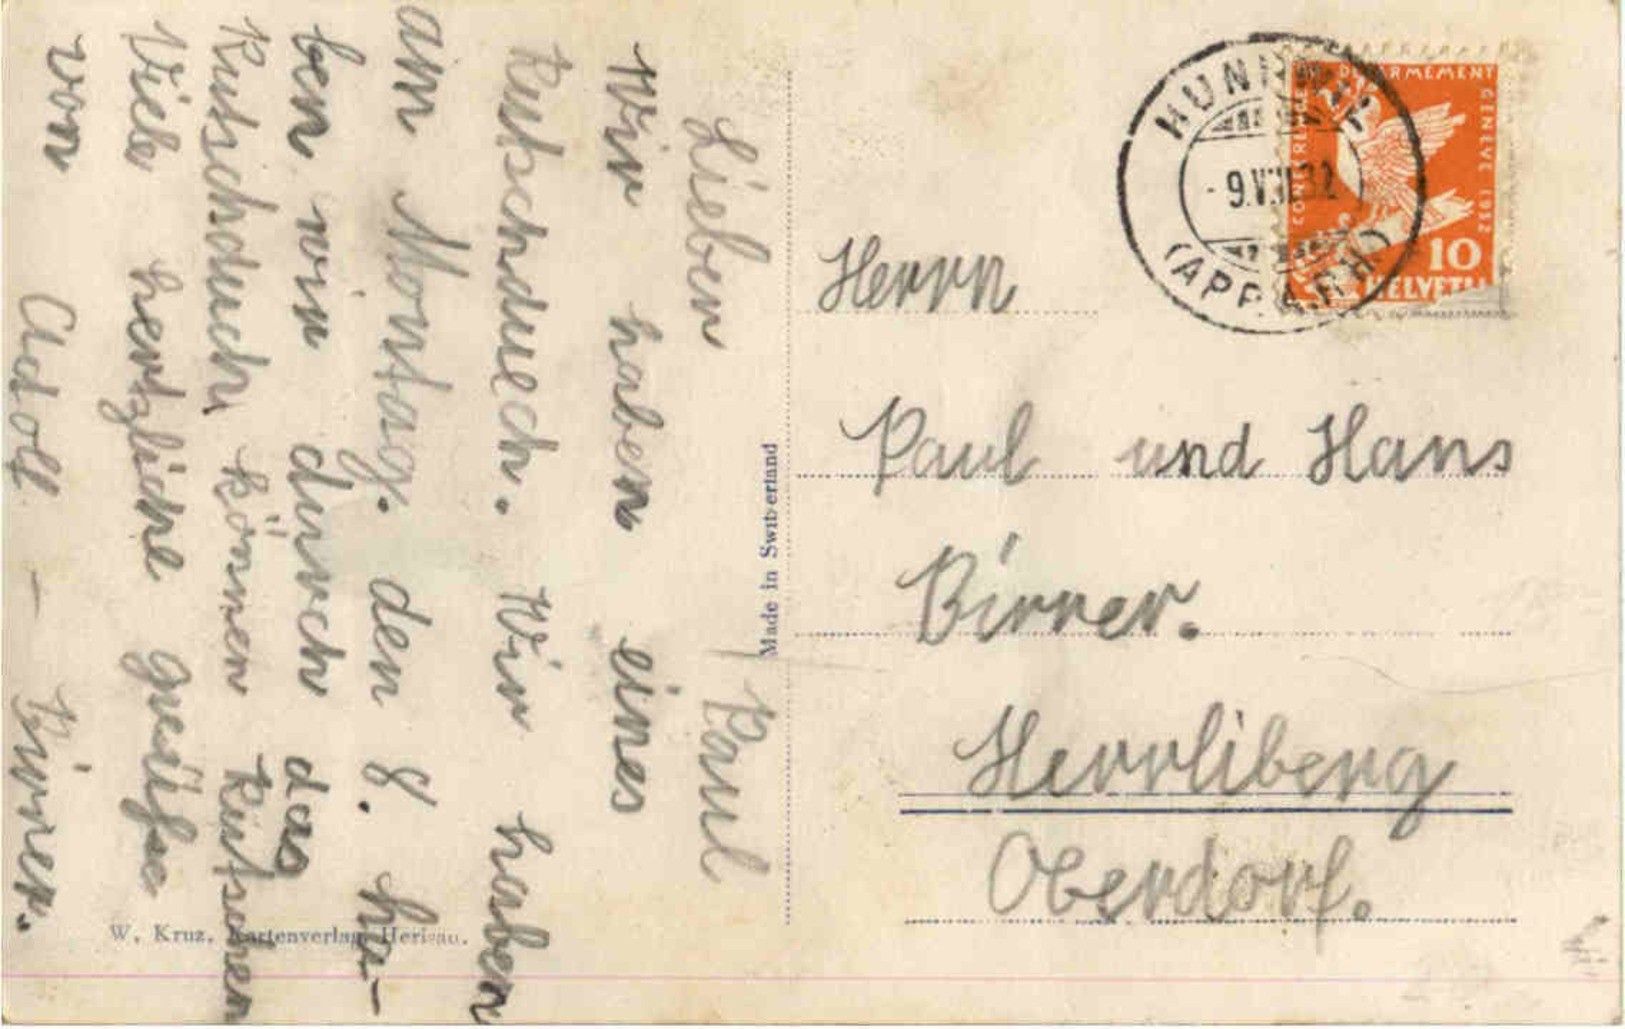 Lieber Paul
Wir haben eines
Rutschduech. Wir haben
am Montag. den 8. ha-
ben wir durch das
Rutschduch können rutschen
Viele hertzliche grüsse
von Adolf - Birrer.
W. Kruz, Kartenverlag, Herisau.
Made in Switzerland
HUNDWIL
- 9.VIII.32
(APP. A.RH.)
CONFERENCE DU DESARMEMENT GENEVE 1932
10
HELVETIA
Herrn
Paul und Hans
Birrer.
Herrliberg
Oberdorf.